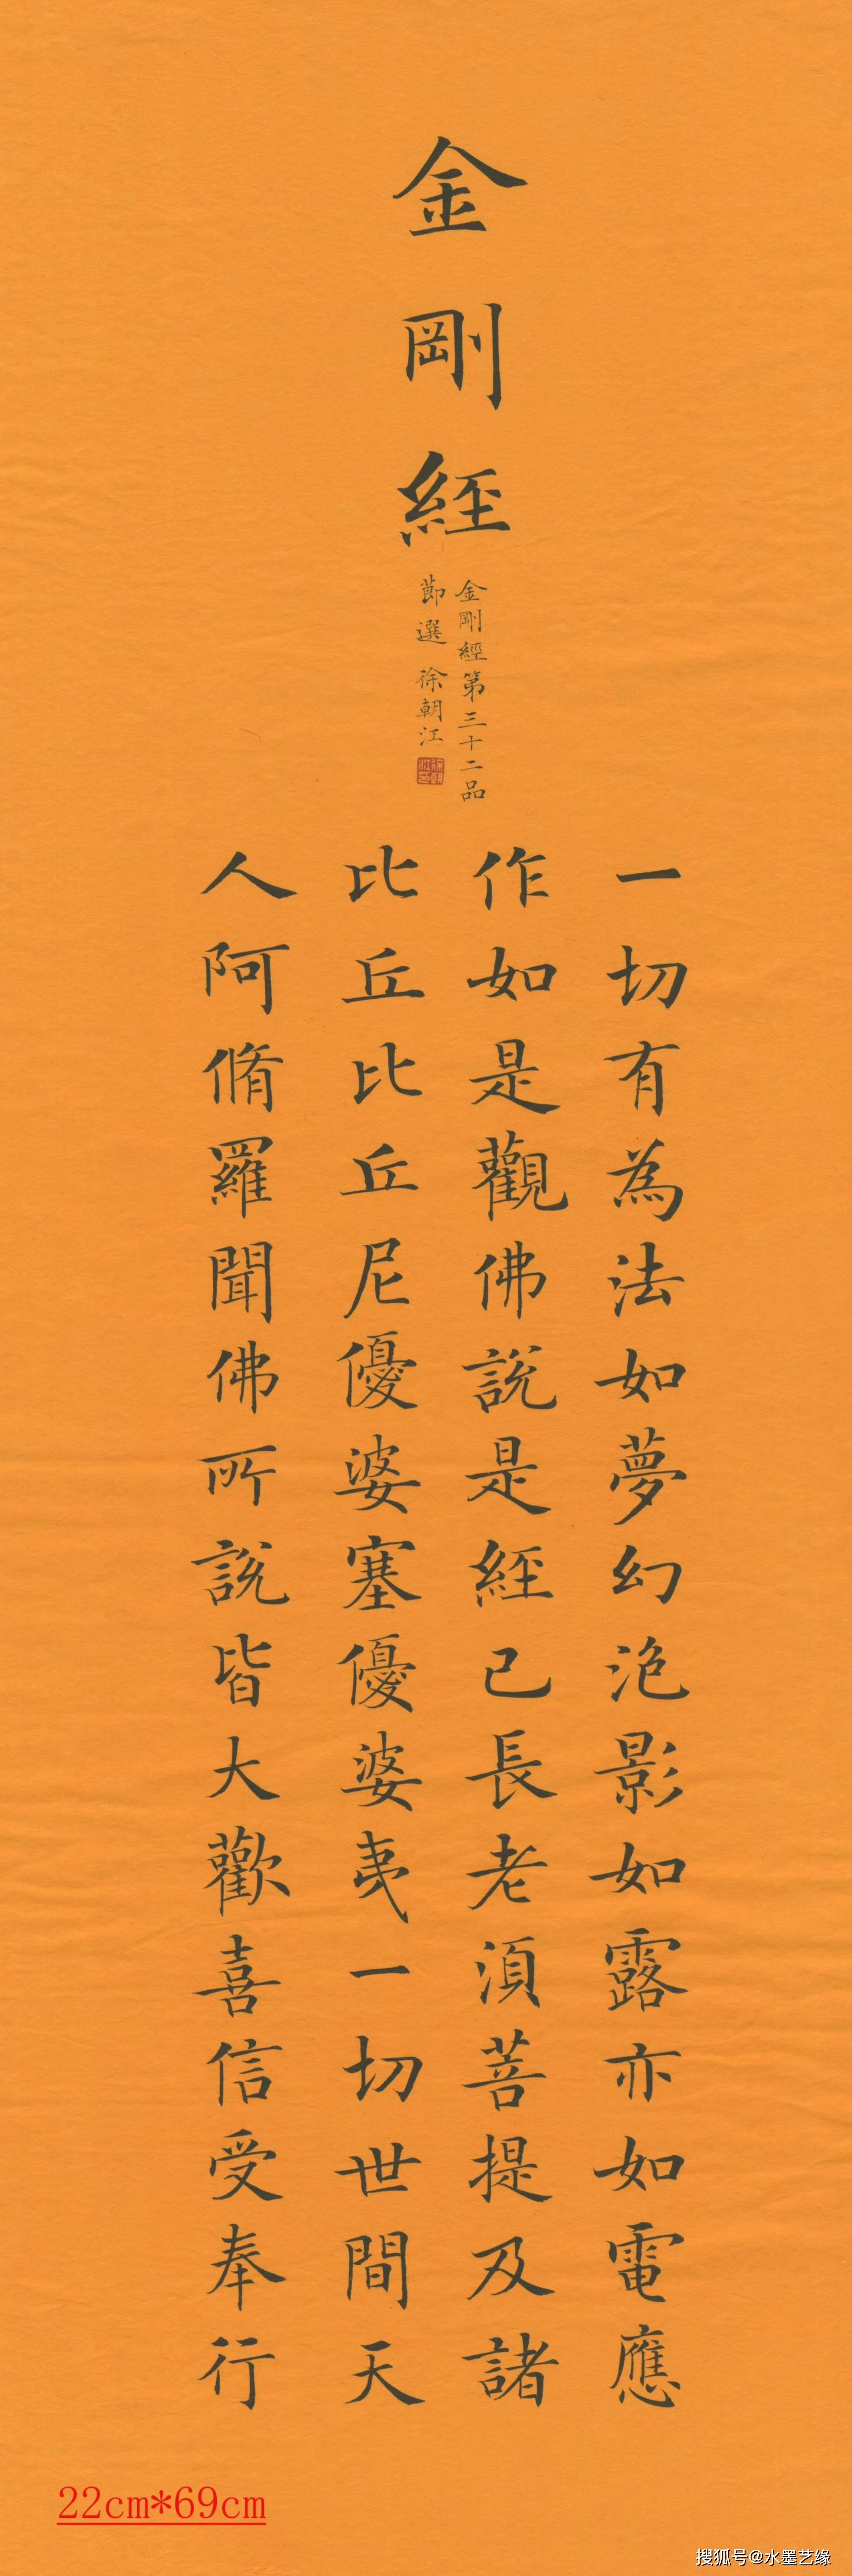 金剛經
金剛經第三十二品
節選 徐朝江
一切有為法如夢幻泡影如露亦如電應
作如是觀佛說是經已長老湏菩提及諸
比丘比丘尼優婆塞優婆夷一切世間天
人阿脩羅聞佛所說皆大歡喜信受奉行
22cm*69cm
搜狐号@水墨艺缘